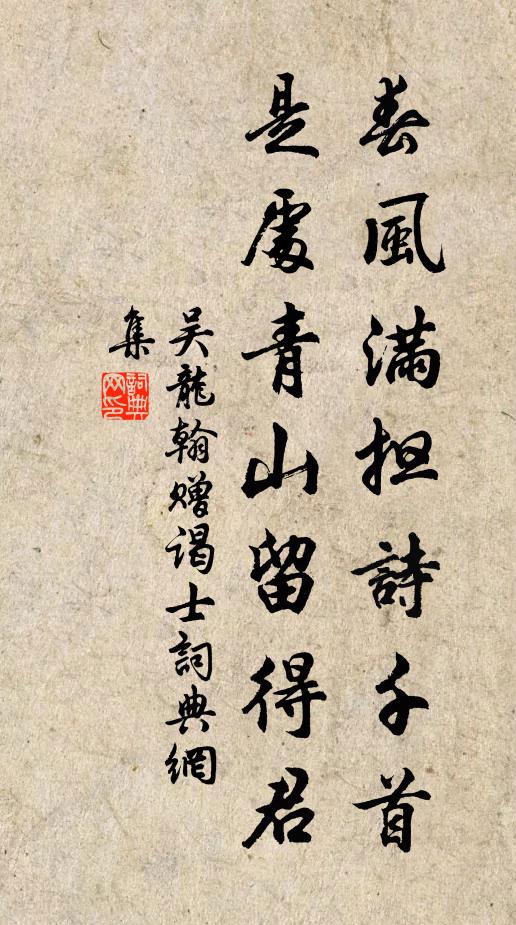 春風滿担詩千首
是處青山留得君
吳龍翰赠谒士詞典網
集
詞典
网印